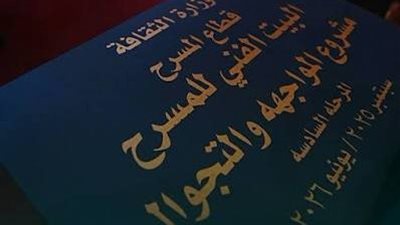 وزارة الثقافة
قطاع المسرح
البيت الفني للمسرح
مشروع المواجهه والتجوال
المرحله السادسه
سبتمبر ٢٠٢٥ / يونيو ٢٠٢٦